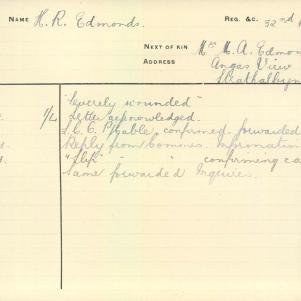 NAME H. R. Edmonds. REG. &C. 32nd
NEXT OF KIN Mrs M. A. Edmon
ADDRESS Angas View
Strathalbyn
"Severely wounded"
1/4 Letter acknowledged.
confirmed forwarded
Reply from
" " confirming ca
Same forwarded Inquirer.